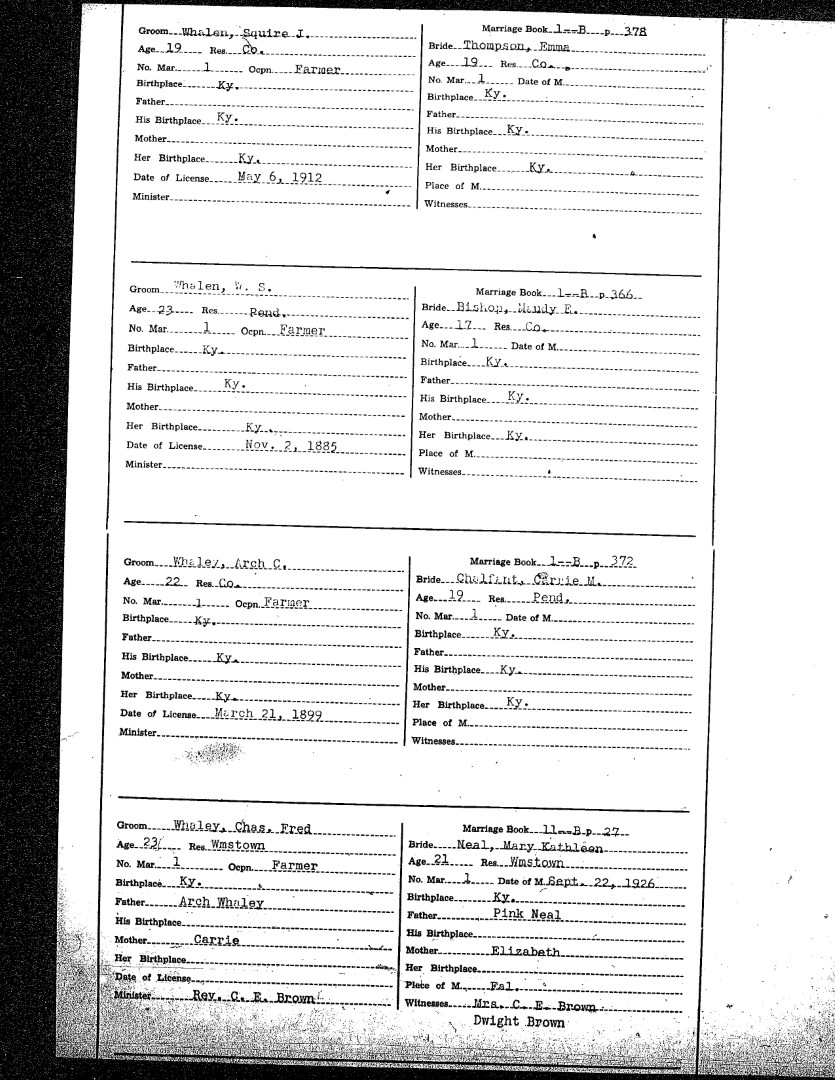 Groom Whalen, Squire J.
Age 19 Res Co.
No. Mar. 1 Ocpn. Farmer
Birthplace Ky.
Father
His Birthplace Ky.
Mother
Her Birthplace Ky.
Date of License May 6, 1912
Minister
Marriage Book 1--B p 378
Bride Thompson, Emma
Age 19 Res Co.
No. Mar 1 Date of M.
Birthplace Ky.
Father
His Birthplace Ky.
Mother
Her Birthplace Ky.
Place of M.
Witnesses
Groom Whalen, W. S.
Age 23 Res Pend.
No. Mar. 1 Ocpn. Farmer
Birthplace Ky.
Father
His Birthplace Ky.
Mother
Her Birthplace Ky.
Date of License Nov. 2, 1885
Minister
Marriage Book 1--B p 366
Bride Bishop, Mandy E.
Age 17 Res Co.
No. Mar 1 Date of M.
Birthplace Ky.
Father
His Birthplace Ky.
Mother
Her Birthplace Ky.
Place of M.
Witnesses
Groom Whaley, Arch C.
Age 22 Res Co.
No. Mar. 1 Ocpn. Farmer
Birthplace Ky.
Father
His Birthplace Ky.
Mother
Her Birthplace Ky.
Date of License March 21, 1899
Minister
Marriage Book 1--B p 372
Bride Chalfant, Carrie M.
Age 19 Res Pend.
No. Mar 1 Date of M.
Birthplace Ky.
Father
His Birthplace Ky.
Mother
Her Birthplace Ky.
Place of M.
Witnesses
Groom Whaley, Chas. Fred
Age 23 Res Wmstown
No. Mar. 1 Ocpn. Farmer
Birthplace Ky.
Father Arch Whaley
His Birthplace
Mother Carrie
Her Birthplace
Date of License
Minister Rev. C. E. Brown
Marriage Book 11--B p 27
Bride Neal, Mary Kathleen
Age 21 Res Wmstown
No. Mar 1 Date of M. Sept. 22, 1926
Birthplace Ky.
Father Pink Neal
His Birthplace
Mother Elizabeth
Her Birthplace
Place of M. Fal.
Witnesses Mrs. C. E. Brown
Dwight Brown